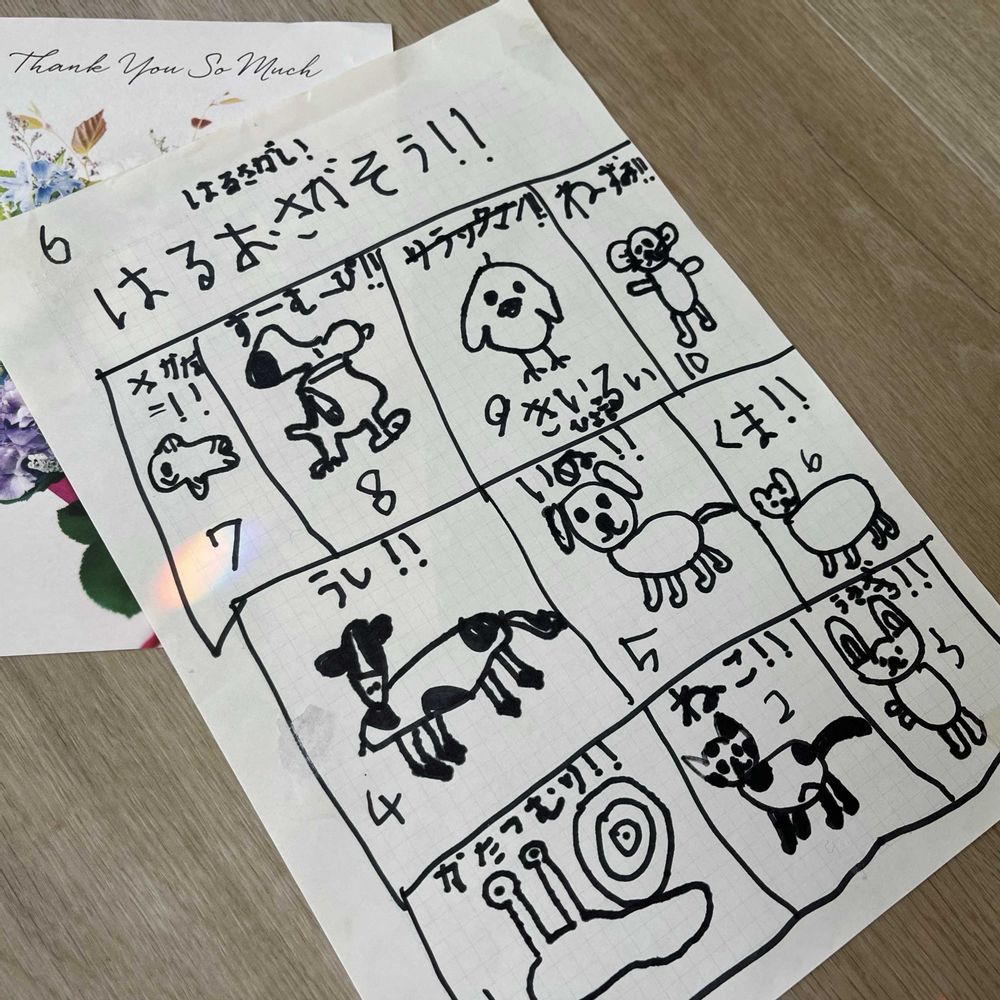 Thank You So Much
はるさがい!
6
はるおさがそう!!
メガだ
=!!
7
すーむーぴ!!
8
サラックマン!!
9きいろい
ねずみ!!
10
うし!!
4
いぬ!!
5
くま!!
6
かたつむり!!
ねこ!!
2
うさぎ!!
3